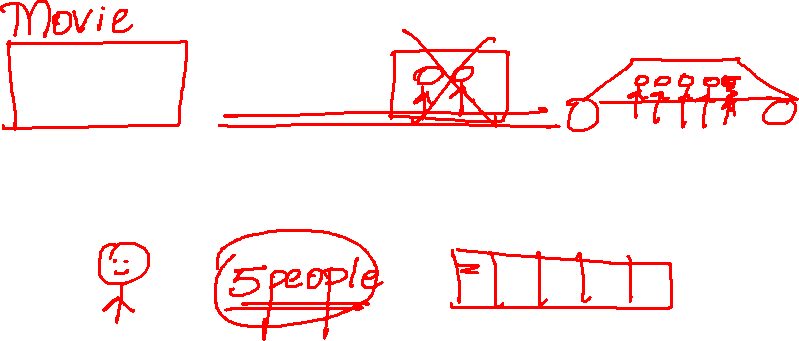 Movie
5people